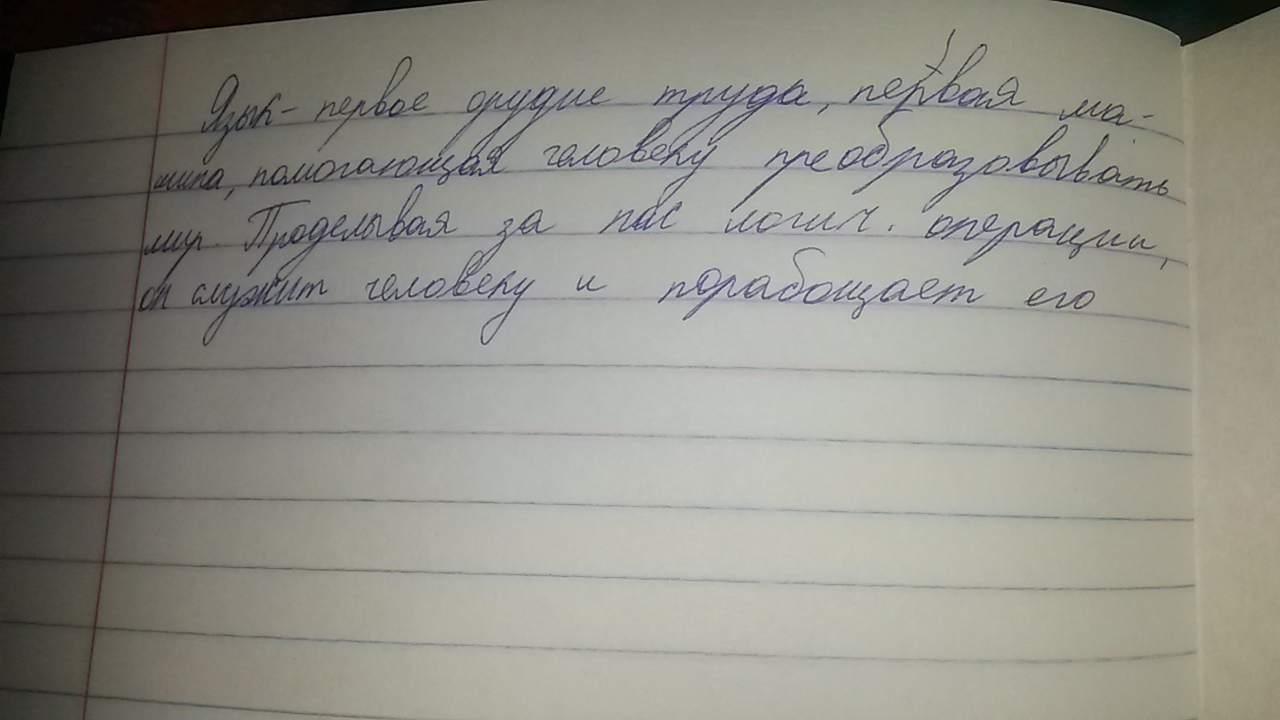 Язык - первое орудие труда, первая ма-
шина, помогающая человеку преобразовывать
мир. Проделывая за нас логич. операции,
он служит человеку и порабощает его